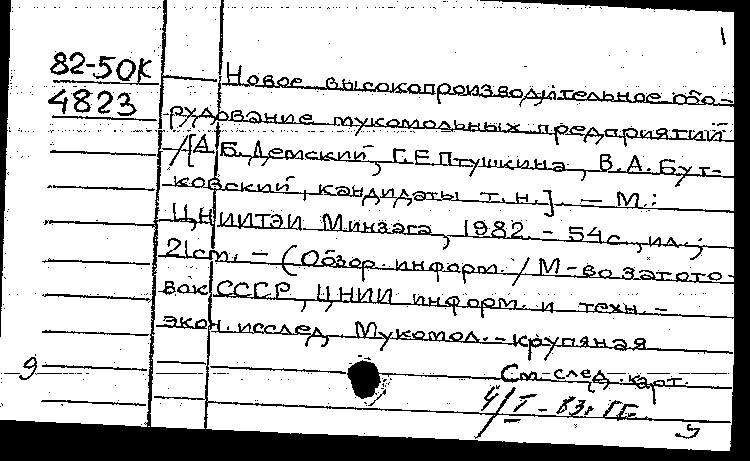 1
82-50К Новое высокопроизводительное обо-
4823 рудование мукомольных предприятий
/[А.Б.Демский, Г.Е.Птушкина, В.А.Бут-
ковский, кандидаты т.н.]. - М.:
ЦНИИТЭИ Минзага, 1982. - 54с., ил.;
21см. - (Обзор. информ. / М-во загото-
вок СССР, ЦНИИ информ. и техн.-
экон. исслед. Мукомол.-крупяная
См. след. карт.
9
4/I-83г.